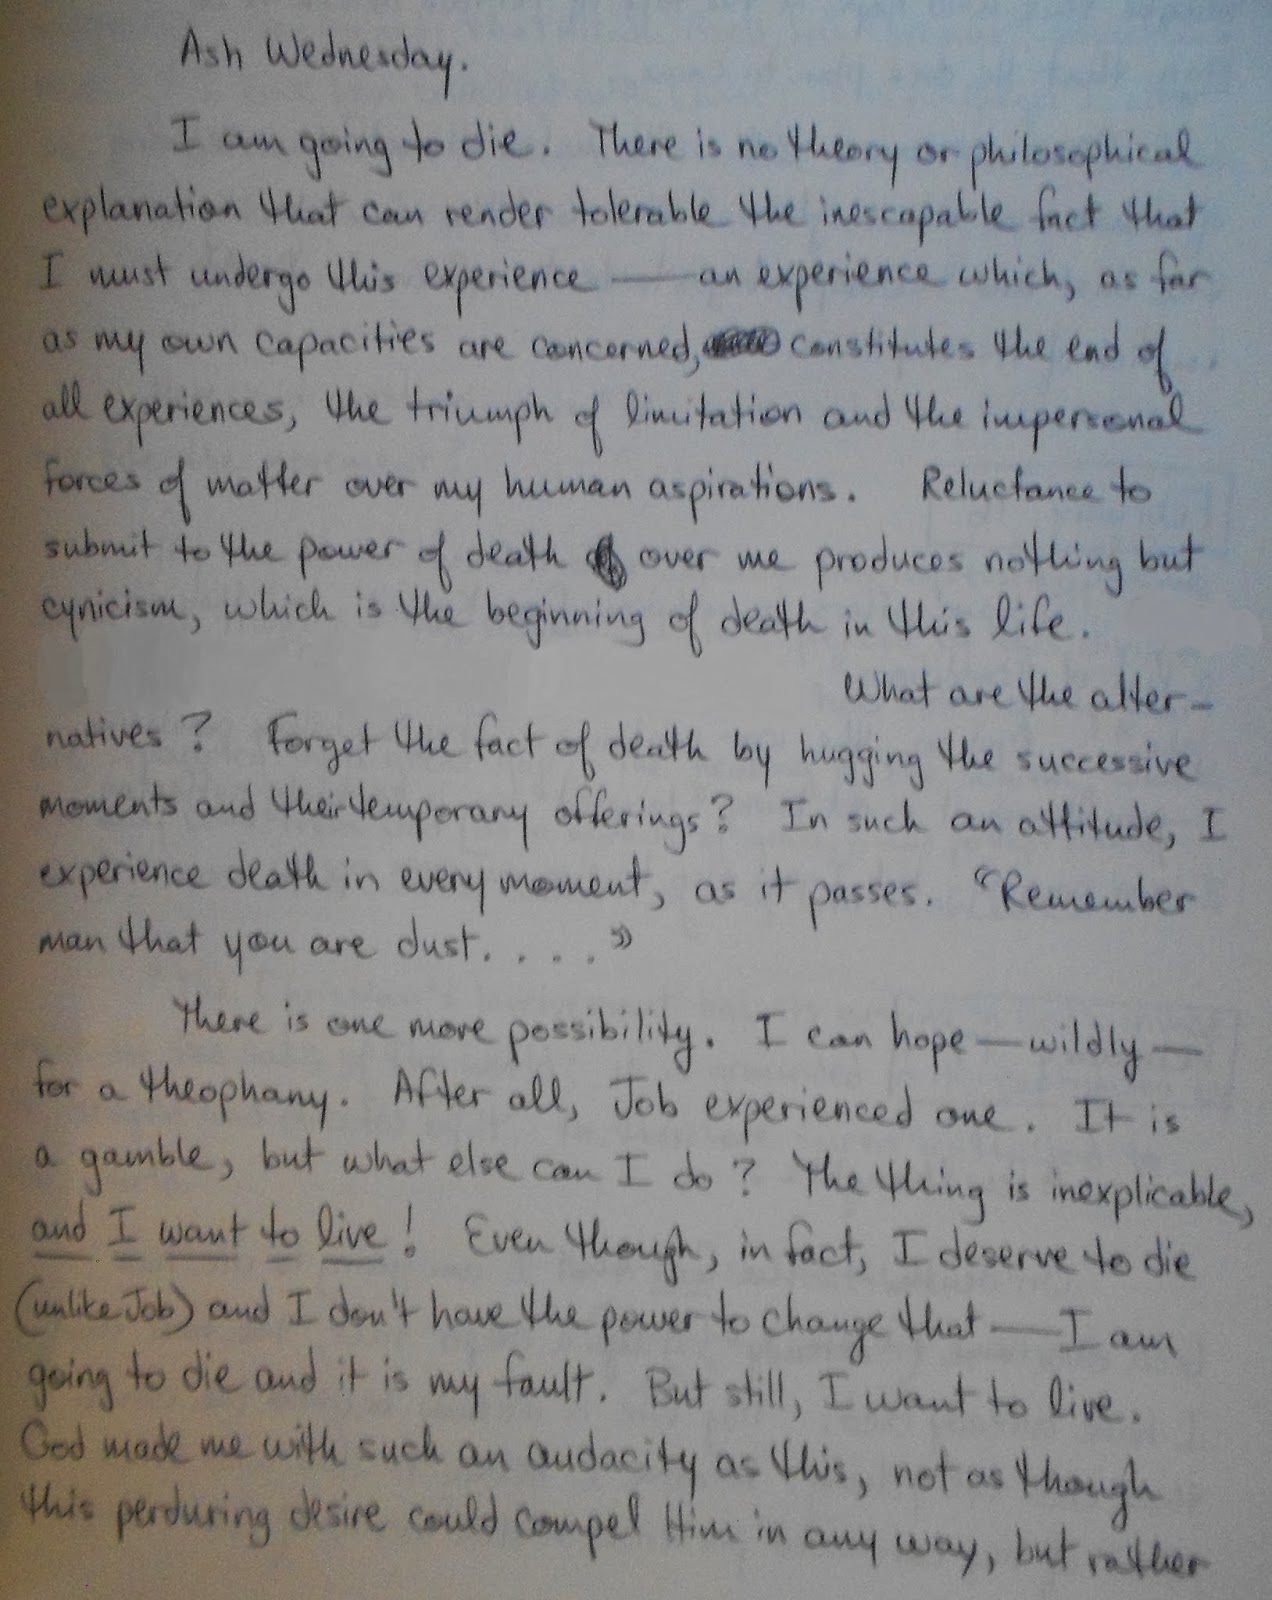 Ash Wednesday.
I am going to die. There is no theory or philosophical
explanation that can render tolerable the inescapable fact that
I must undergo this experience — an experience which, as far
as my own capacities are concerned, constitutes the end of
all experiences, the triumph of limitation and the impersonal
forces of matter over my human aspirations. Reluctance to
submit to the power of death over me produces nothing but
cynicism, which is the beginning of death in this life.
What are the alter-
natives? Forget the fact of death by hugging the successive
moments and their temporary offerings? In such an attitude, I
experience death in every moment, as it passes. "Remember
man that you are dust. . . . "
There is one more possibility. I can hope — wildly —
for a theophany. After all, Job experienced one. It is
a gamble, but what else can I do? The thing is inexplicable,
and I want to live! Even though, in fact, I deserve to die
(unlike Job) and I don't have the power to change that — I am
going to die and it is my fault. But still, I want to live.
God made me with such an audacity as this, not as though
this perduring desire could compel Him in any way, but rather